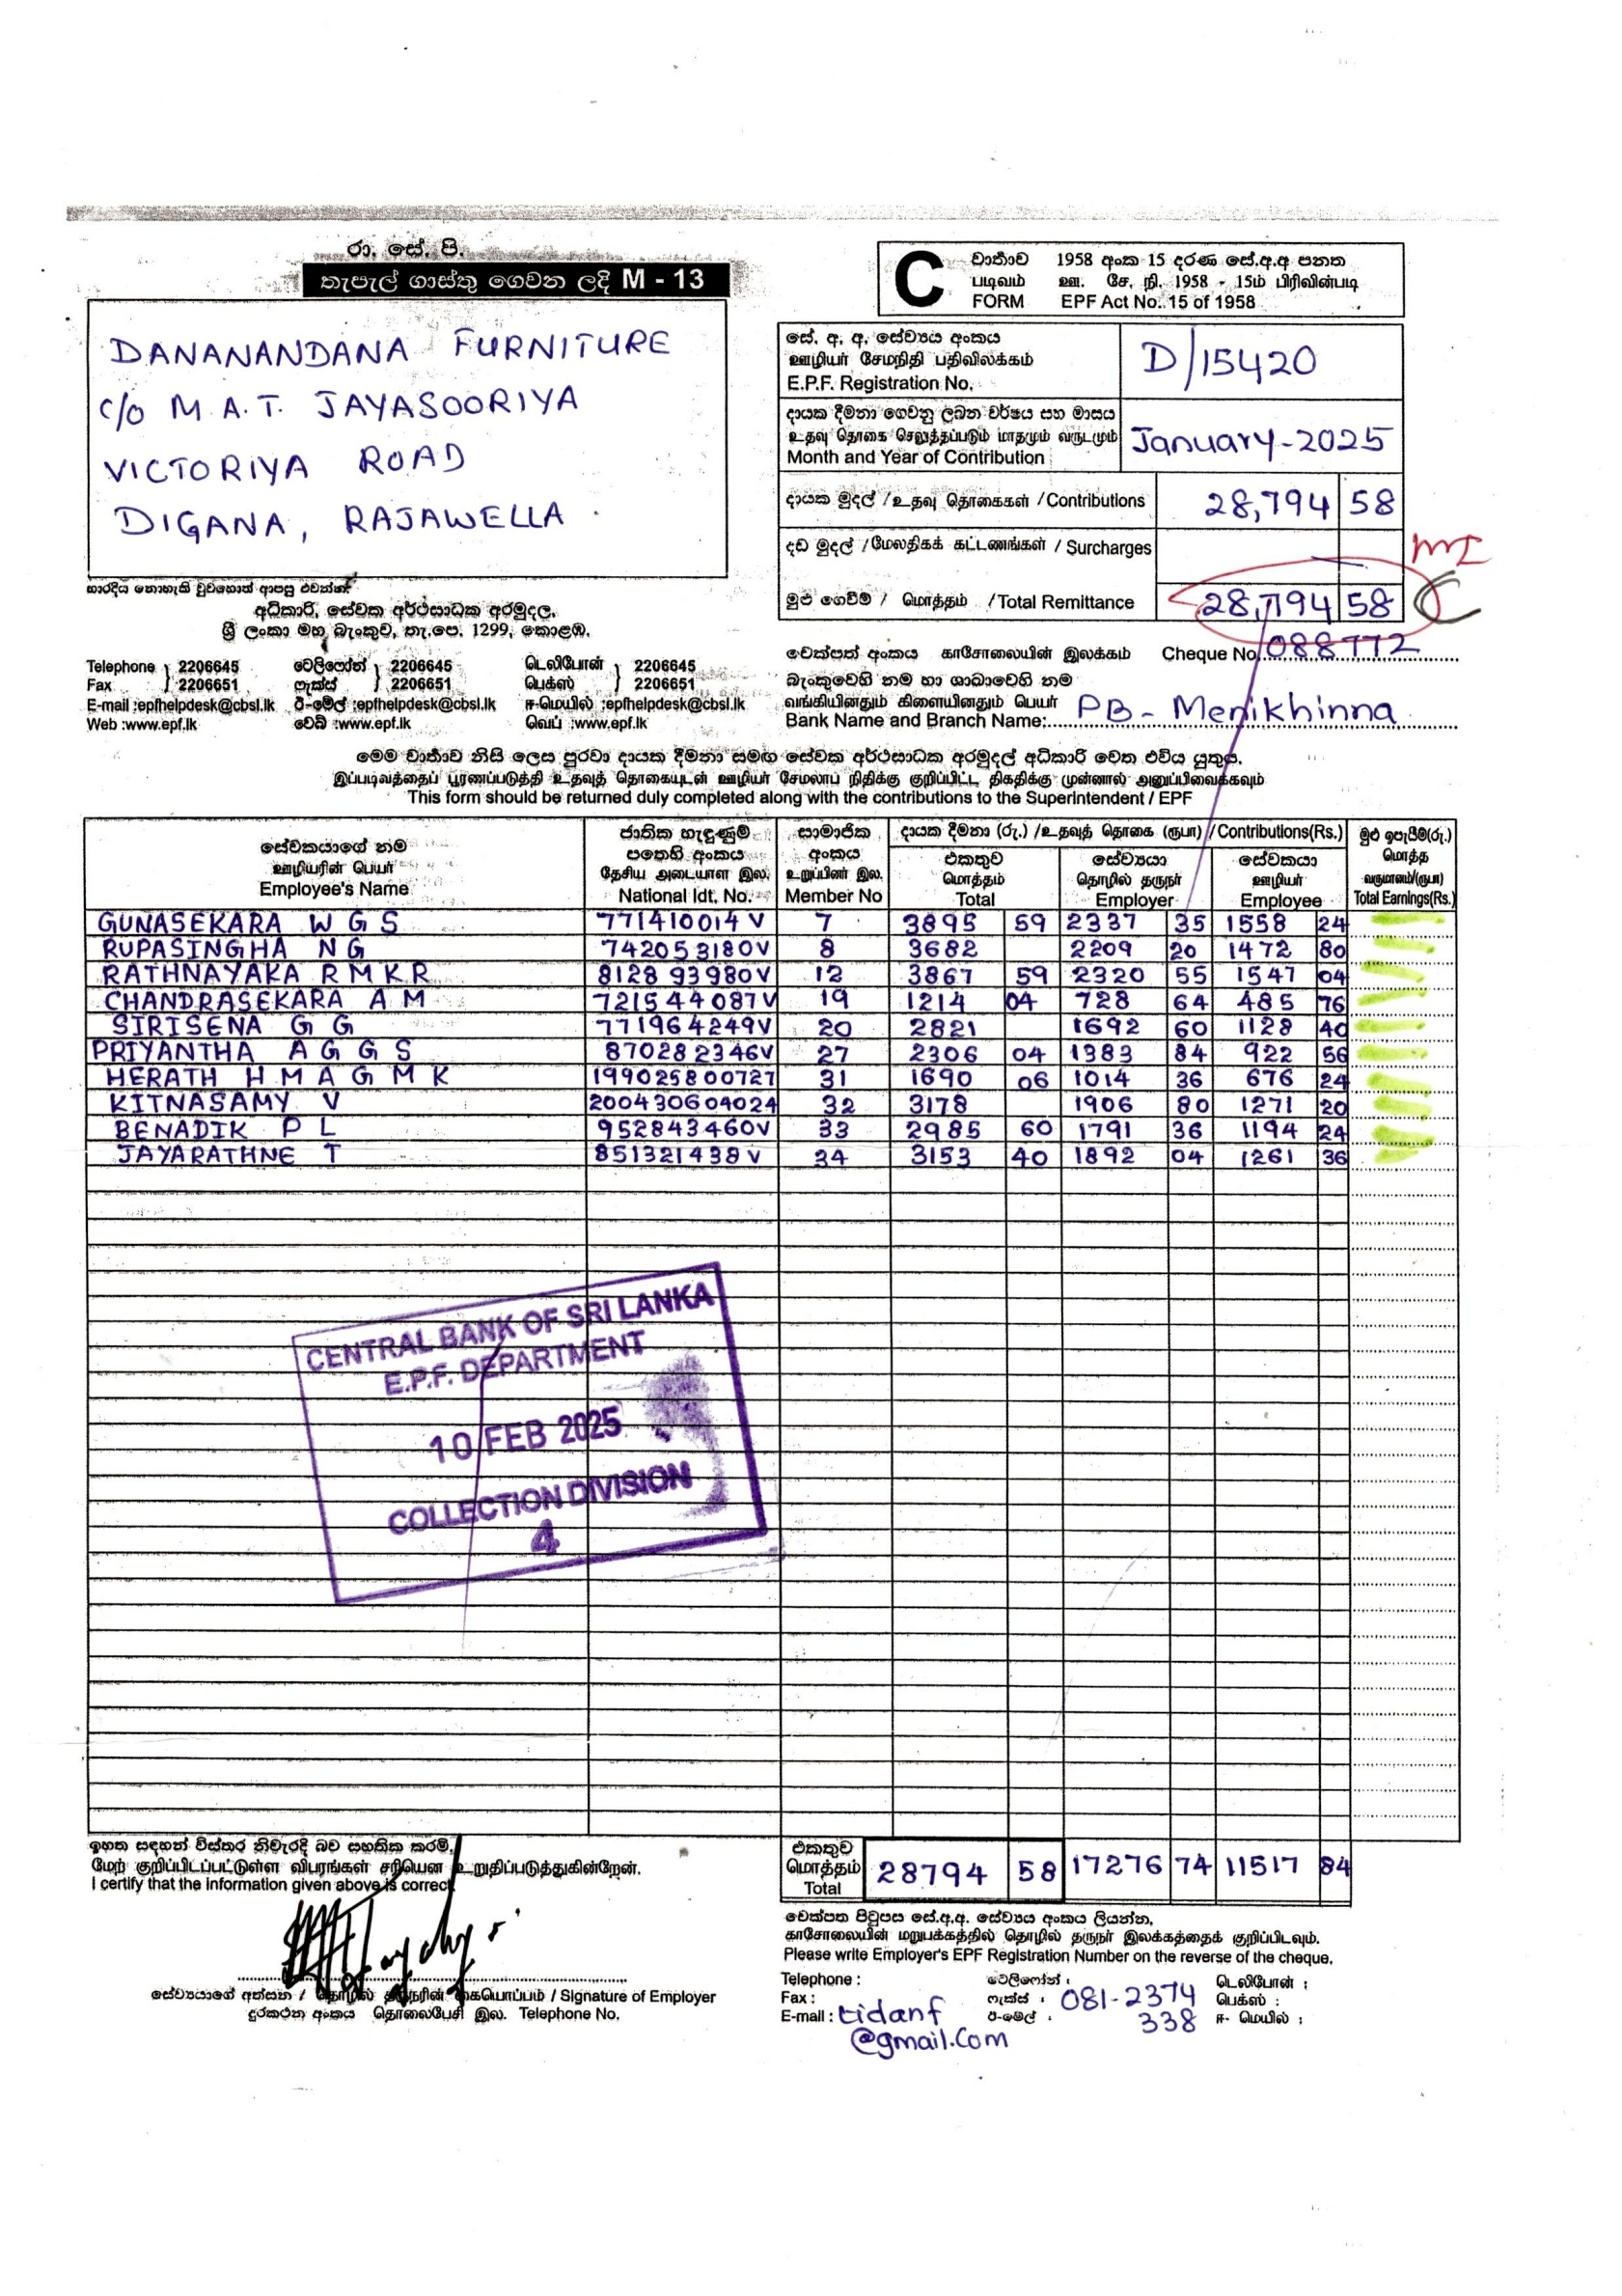 රා. සේ. පි.
තැපැල් ගාස්තු ගෙවන ලදි M - 13
DANANANDANA FURNITURE
C/O M.A.T. JAYASOORIYA
VICTORIYA ROAD
DIGANA, RAJAWELLA.
භාරදිය නොහැකි වුවහොත් ආපසු එවන්න.
අධිකාරි, සේවක අර්ථසාධක අරමුදල,
ශ්‍රී ලංකා මහ බැංකුව, තැ.පෙ. 1299, කොළඹ.
Telephone } 2206645 ටෙලිෆෝන් } 2206645 டெலிபோன் } 2206645
Fax } 2206651 ෆැක්ස් } 2206651 பெக்ஸ் } 2206651
E-mail :epfhelpdesk@cbsl.lk ඊ-මේල් :epfhelpdesk@cbsl.lk ஈ-மெயில் :epfhelpdesk@cbsl.lk
Web :www.epf.lk වෙබ් :www.epf.lk வெப் :www.epf.lk
C
වාර්තාව 1958 අංක 15 දරණ සේ.අ.අ පනත
படிவம் ஊ. சே. நி. 1958 - 15ம் பிரிவின்படி
FORM EPF Act No. 15 of 1958
සේ. අ. අ. සේව්‍යය අංකය
ஊழியர் சேமநிதி பதிவிலக்கம்
E.P.F. Registration No.
D/15420
දායක දීමනා ගෙවනු ලබන වර්ෂය සහ මාසය
உதவு தொகை செலுத்தப்படும் மாதமும் வருடமும்
Month and Year of Contribution
January-2025
දායක මුදල් / உதவு தொகைகள் / Contributions 28,794 58
දඩ මුදල් / மேலதிகக் கட்டணங்கள் / Surcharges
මුළු ගෙවීම් / மொத்தம் / Total Remittance 28,794 58
චෙක්පත් අංකය காசோலையின் இலக்கம் Cheque No. 088772
බැංකුවෙහි නම හා ශාඛාවෙහි නම
வங்கியினதும் கிளையினதும் பெயர்
Bank Name and Branch Name: PB - Menikhinna
මෙම වාර්තාව නිසි ලෙස පුරවා දායක දීමනා සමඟ සේවක අර්ථසාධක අරමුදල් අධිකාරි වෙත එවිය යුතුය.
இப்படிவத்தைப் பூரணப்படுத்தி உதவுத் தொகையுடன் ஊழியர் சேமலாப நிதிக்கு குறிப்பிட்ட திகதிக்கு முன்னால் அனுப்பிவைக்கவும்
This form should be returned duly completed along with the contributions to the Superintendent / EPF
සේවකයාගේ නම
ஊழியரின் பெயர்
Employee's Name
ජාතික හැඳුණුම්
පතෙහි අංකය
தேசிய அடையாள இல.
National Idt. No.
සාමාජික
අංකය
உறுப்பினர் இல.
Member No
දායක දීමනා (රු.) / உதவுத் தொகை (ரூபா) / Contributions(Rs.)
එකතුව
மொத்தம்
Total
සේව්‍යයා
தொழில் தருநர்
Employer
සේවකයා
ஊழியர்
Employee
මුළු ඉපැයීම්(රු.)
மொத்த
வருமானம்(ரூபா)
Total Earnings(Rs.)
GUNASEKARA W G S 771410014V 7 3895 59 2337 35 1558 24
RUPASINGHA N G 742053180V 8 3682 2209 20 1472 80
RATHNAYAKA R M K R 812893980V 12 3867 59 2320 55 1547 04
CHANDRASEKARA A M 721544087V 19 1214 04 728 64 485 76
SIRISENA G G 771964249V 20 2821 1692 60 1128 40
PRIYANTHA A G G S 870282346V 27 2306 04 1383 84 922 56
HERATH H M A G M K 199025800727 31 1690 06 1014 36 676 24
KITNASAMY V 200430604024 32 3178 1906 80 1271 20
BENADIK P L 952843460V 33 2985 60 1791 36 1194 24
JAYARATHNE T 851321438V 34 3153 40 1892 04 1261 36
CENTRAL BANK OF SRI LANKA
E.P.F. DEPARTMENT
10 FEB 2025
COLLECTION DIVISION
4
ඉහත සඳහන් විස්තර නිවැරදි බව සහතික කරමි.
மேற் குறிப்பிடப்பட்டுள்ள விபரங்கள் சரியென உறுதிப்படுத்துகின்றேன்.
I certify that the information given above is correct
එකතුව
மொத்தம்
Total
28794 58 17276 74 11517 84
සේව්‍යයාගේ අත්සන / தொழில் தருநரின் கையொப்பம் / Signature of Employer
දුරකථන අංකය தொலைபேசி இல. Telephone No.
චෙක්පත පිටුපස සේ.අ.අ. සේව්‍යය අංකය ලියන්න.
காசோலையின் மறுபக்கத்தில் தொழில் தருநர் இலக்கத்தைக் குறிப்பிடவும்.
Please write Employer's EPF Registration Number on the reverse of the cheque.
Telephone : ටෙලිෆෝන් : டெலிபோன் :
Fax : ෆැක්ස් : 081-2374 பெக்ஸ் :
E-mail : tidanf ඊ-මේල් : 338 ஈ- மெயில் :
@gmail.com